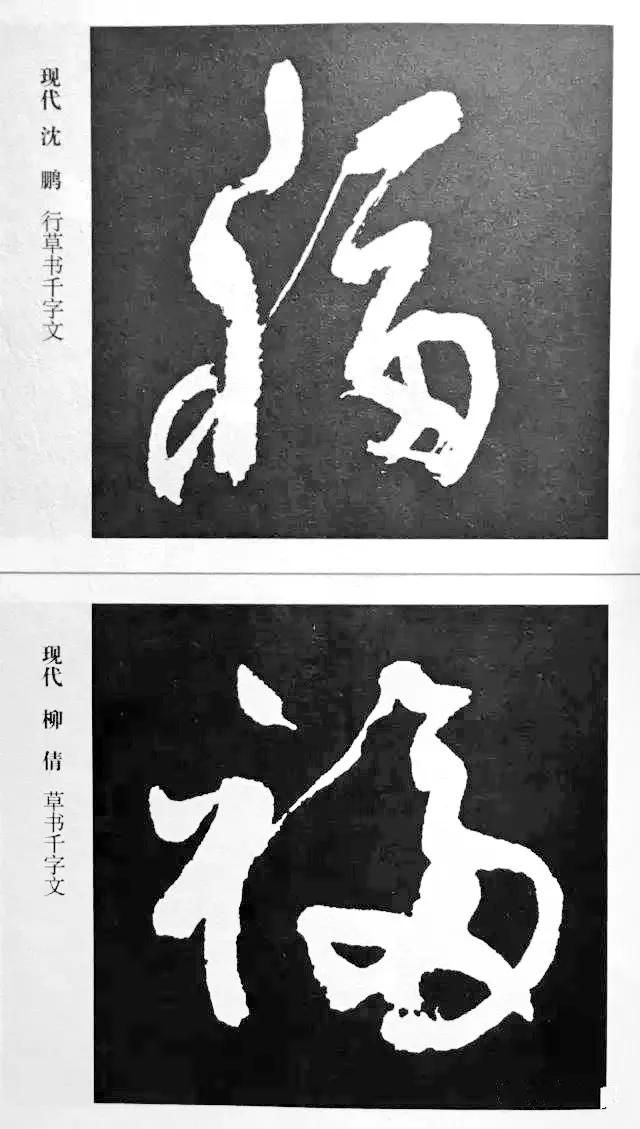 现代 沈 鹏 行草书千字文
福
现代 柳 倩 草书千字文
福